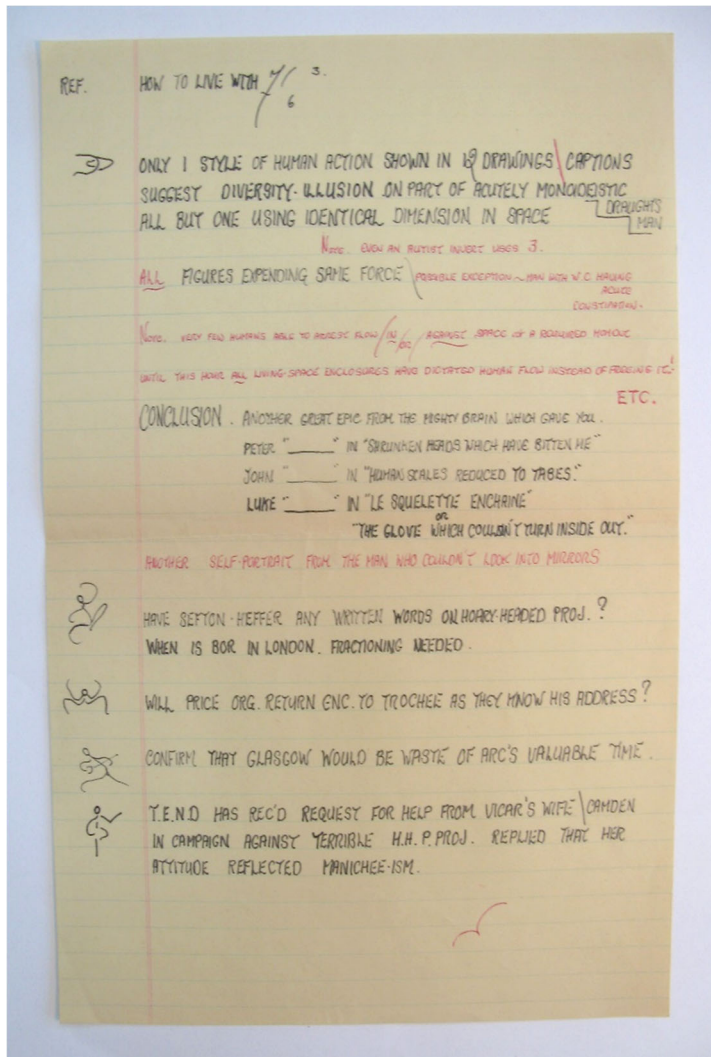 REF. HOW TO LIVE WITH 7/6 3.
ONLY 1 STYLE OF HUMAN ACTION SHOWN IN DRAWINGS \ CAPTIONS
SUGGEST DIVERSITY-ILLUSION ON PART OF ACUTELY MONOIDEISTIC
DRAUGHTS
MAN
ALL BUT ONE USING IDENTICAL DIMENSION IN SPACE
NOTE. EVEN AN AUTIST INVERT USES 3.
ALL FIGURES EXPENDING SAME FORCE \ POSSIBLE EXCEPTION ~ MAN WITH W.C. HAVING
ACUTE
CONSTIPATION.
NOTE. VERY FEW HUMANS ABLE TO ARREST FLOW / IN / OR / AGAINST SPACE AT A REQUIRED MOMENT
UNTIL THIS HOUR ALL LIVING-SPACE ENCLOSURES HAVE DICTATED HUMAN FLOW INSTEAD OF FREEING IT!
ETC.
CONCLUSION. ANOTHER GREAT EPIC FROM THE MIGHTY BRAIN WHICH GAVE YOU.
PETER "______" IN "SHRUNKEN HEADS WHICH HAVE BITTEN ME"
JOHN "______" IN "HUMAN SCALES REDUCED TO TABES."
LUKE "______" IN "LE SQUELETTE ENCHAINE"
OR
"THE GLOVE WHICH COULDN'T TURN INSIDE OUT."
ANOTHER SELF-PORTRAIT FROM THE MAN WHO COULDN'T LOOK INTO MIRRORS
HAVE SEFTON-HEFFER ANY WRITTEN WORDS ON HOARY-HEADED PROJ.?
WHEN IS BOR IN LONDON. FRACTIONING NEEDED.
WILL PRICE ORG. RETURN ENC. TO TROCHEE AS THEY KNOW HIS ADDRESS?
CONFIRM THAT GLASGOW WOULD BE WASTE OF ARC'S VALUABLE TIME.
T.E.N.D HAS REC'D REQUEST FOR HELP FROM VICAR'S WIFE \ CAMDEN
IN CAMPAIGN AGAINST TERRIBLE H.H.P. PROJ. REPLIED THAT HER
ATTITUDE REFLECTED MANICHEE-ISM.